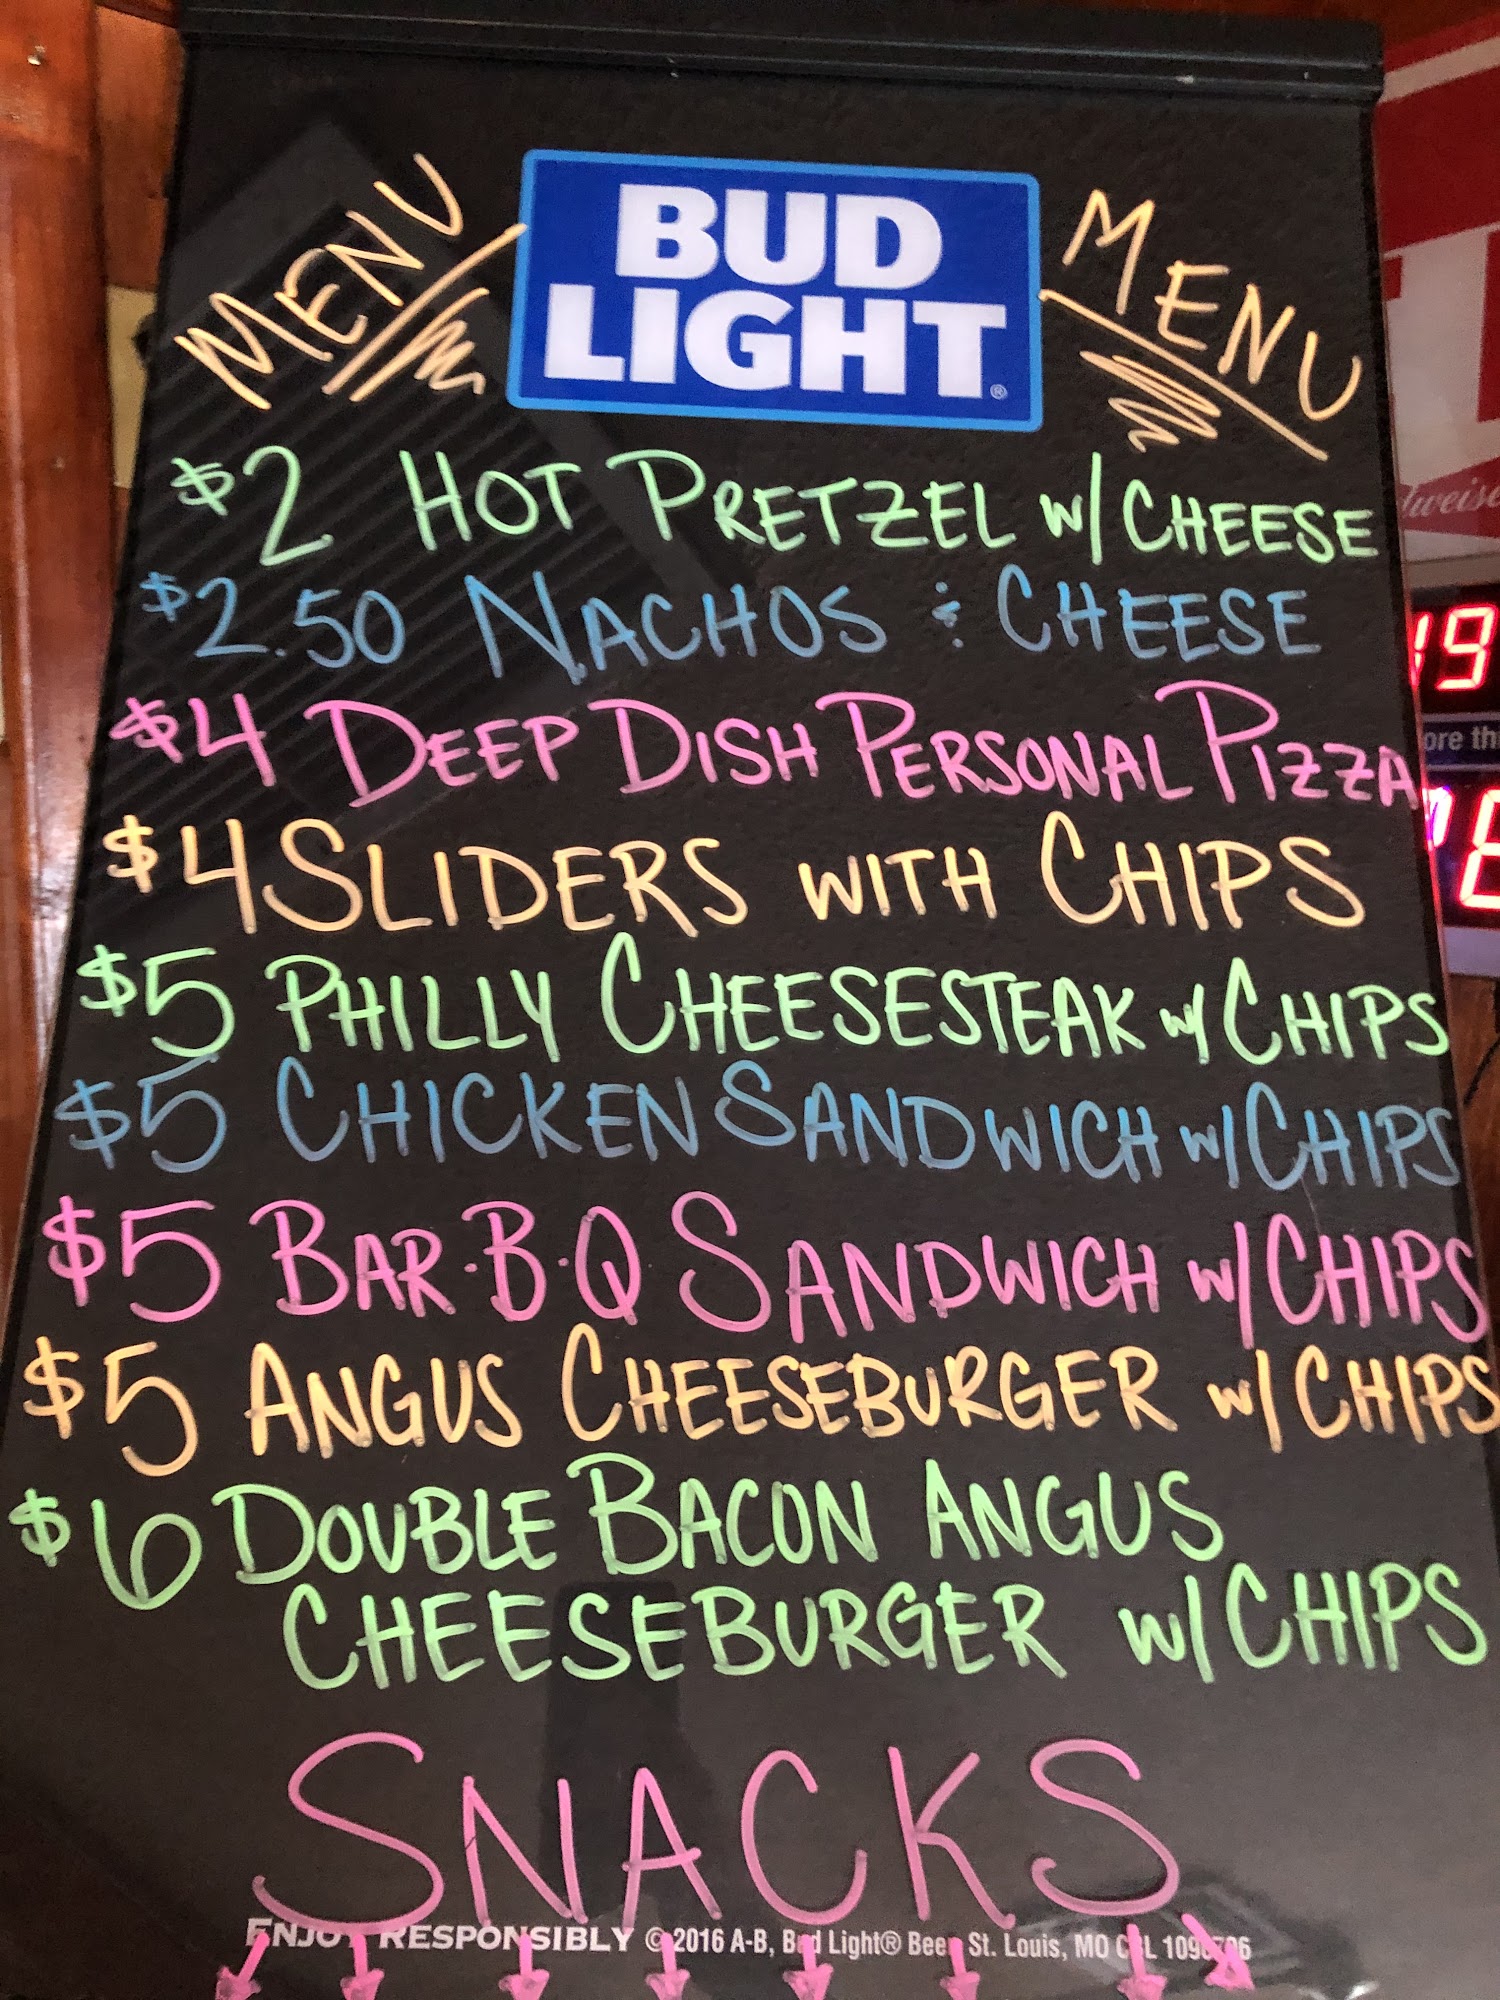 MENU
BUD
LIGHT®
MENU
$2 HOT PRETZEL w/ CHEESE
$2.50 NACHOS & CHEESE
$4 DEEP DISH PERSONAL PIZZA
$4 SLIDERS WITH CHIPS
$5 PHILLY CHEESESTEAK w/ CHIPS
$5 CHICKEN SANDWICH w/ CHIPS
$5 BAR-B-Q SANDWICH w/ CHIPS
$5 ANGUS CHEESEBURGER w/ CHIPS
$6 DOUBLE BACON ANGUS
CHEESEBURGER w/ CHIPS
SNACKS
ENJOY RESPONSIBLY © 2016 A-B, Bud Light® Beer, St. Louis, MO
19
ore th